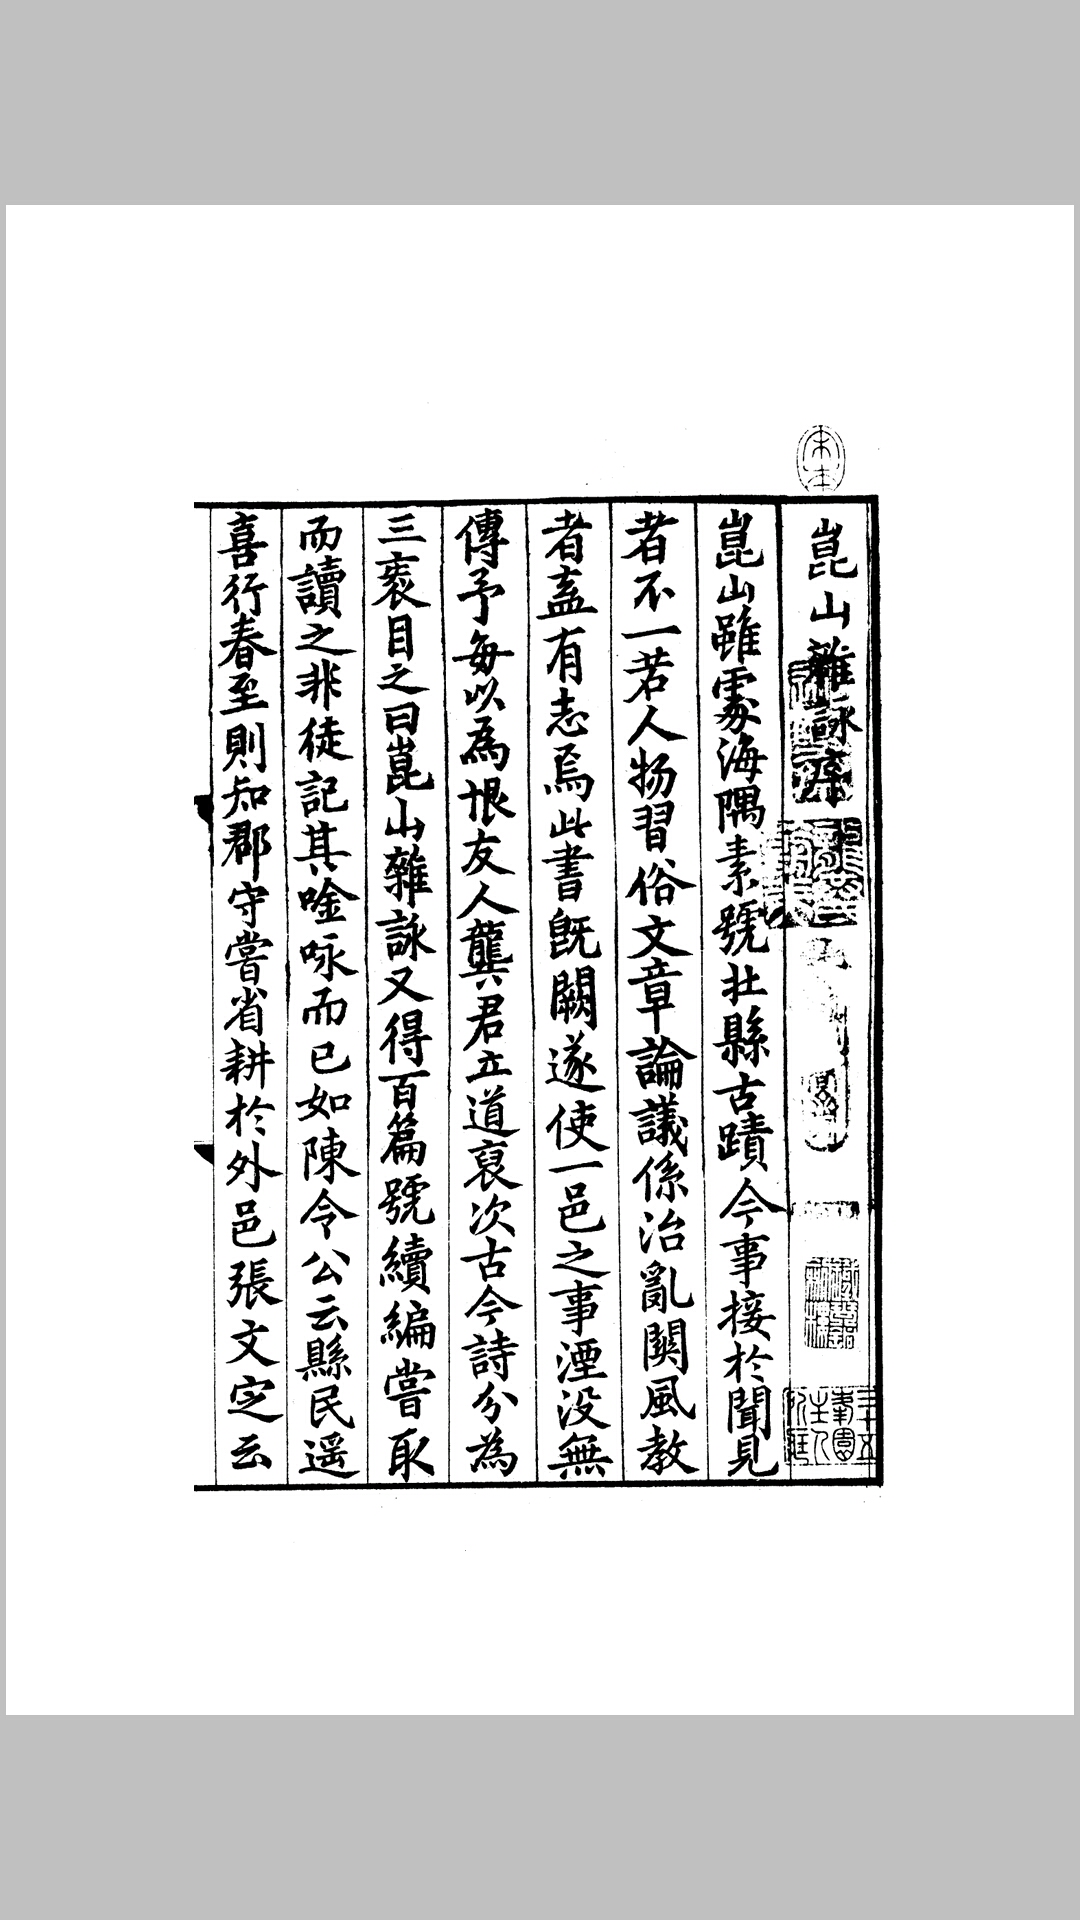 崑山雜詠序
崑山雖處海隅素號壯縣古蹟今事接於聞見
者不一若人物習俗文章論議係治亂関風教
者盍有志焉此書旣闕遂使一邑之事湮没無
傳予每以為恨友人龔君立道裒次古今詩分為
三袠目之曰崑山雜詠又得百篇號續編嘗取
而讀之非徒記其唫咏而已如陳令公云縣民遥
喜行春至則知郡守嘗省耕於外邑張文定云